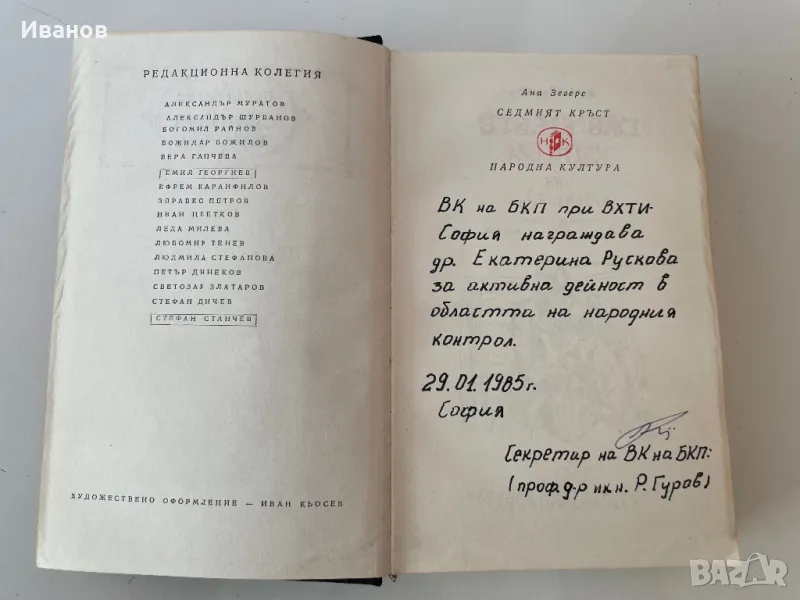 Иванов
РЕДАКЦИОННА КОЛЕГИЯ
АЛЕКСАНДЪР МУРАТОВ
АЛЕКСАНДЪР ШУРБАНОВ
БОГОМИЛ РАЙНОВ
БОЖИДАР БОЖИЛОВ
ВЕРА ГАНЧЕВА
ЕМИЛ ГЕОРГИЕВ
ЕФРЕМ КАРАНФИЛОВ
ЗДРАВКО ПЕТРОВ
ИВАН ЦВЕТКОВ
ЛЕДА МИЛЕВА
ЛЮБОМИР ТЕНЕВ
ЛЮДМИЛА СТЕФАНОВА
ПЕТЪР ДИНЕКОВ
СВЕТОЗАР ЗЛАТАРОВ
СТЕФАН ДИЧЕВ
СТЕФАН СТАНЧЕВ
ХУДОЖЕСТВЕНО ОФОРМЛЕНИЕ — ИВАН КЬОСЕВ
Ана Зегерс
СЕДМИЯТ КРЪСТ
НК
НАРОДНА КУЛТУРА
ВК на БКП при ВХТИ-
София награждава
др. Екатерина Рускова
за активна дейност в
областта на народния
контрол.
29.01.1985г.
София
Секретар на ВК на БКП:
(проф. д-р ик.н. Р. Гуров)
BAZAR